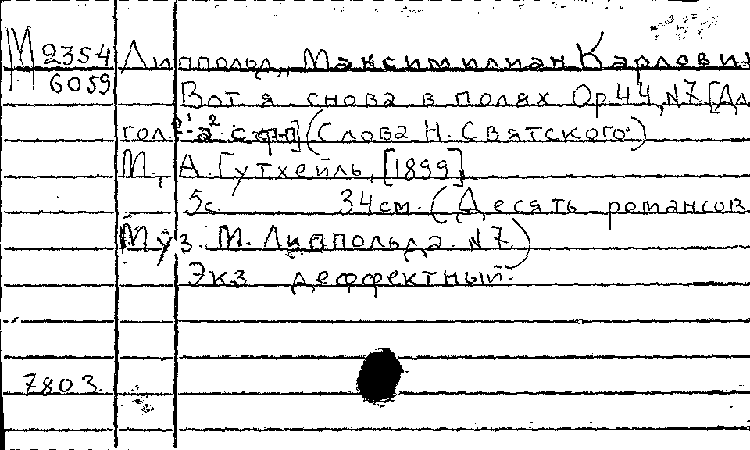 М 2354 Лиапольд, Максимилиан Карлович
6059 Вот я снова в полях Op 44, N7 [Дл
гол. с фп] (Слова Н. Святского)
М., А. Гутхейль, [1899]
5с. 34см. (Десять романсов.
Муз. М. Лиапольда. N7)
Экз деффектный.
7803